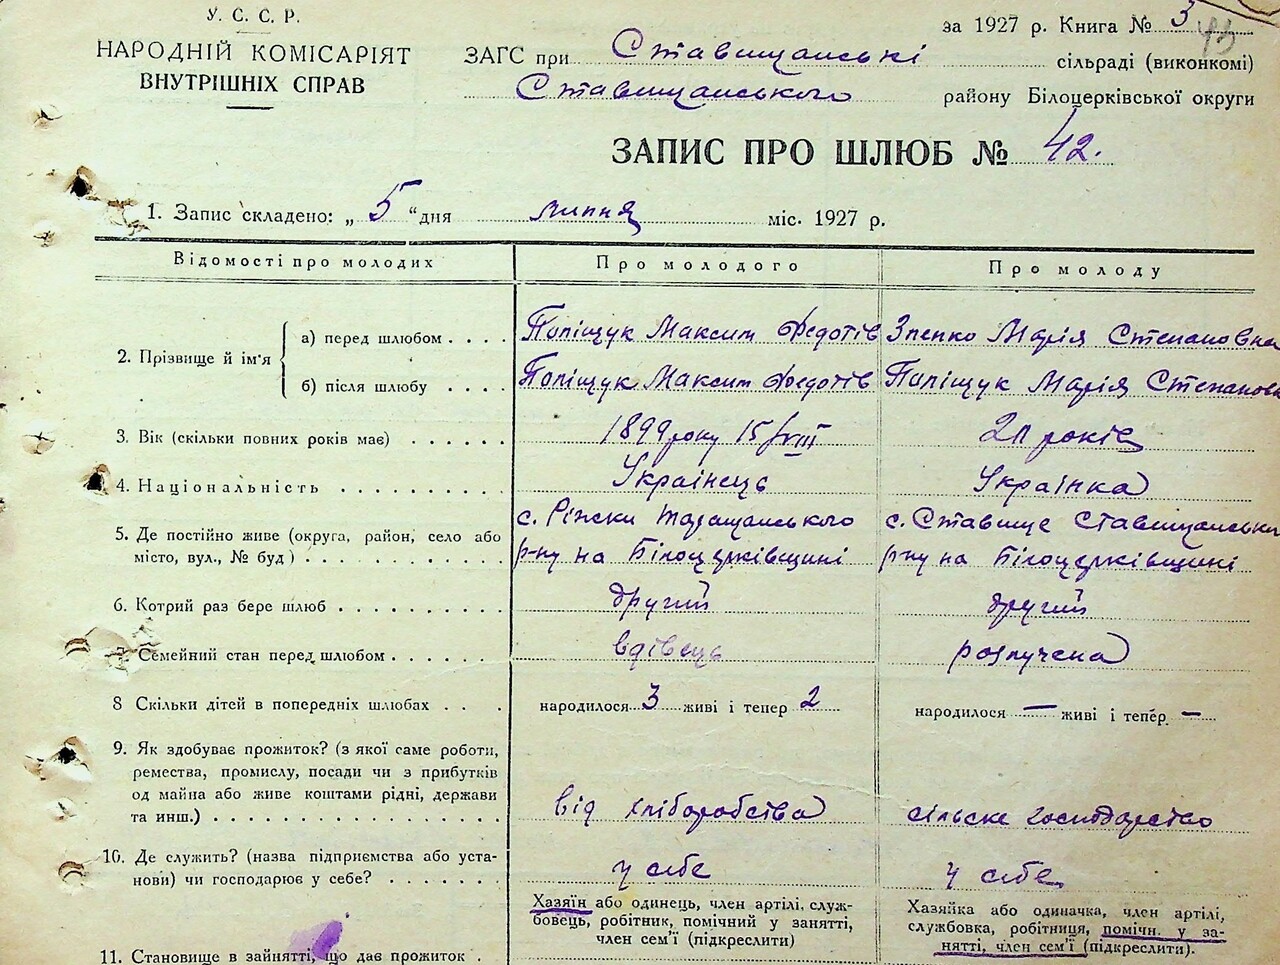 У. С. С. Р.
НАРОДНІЙ КОМІСАРІЯТ
ВНУТРІШНІХ СПРАВ
за 1927 р. Книга № 3
ЗАГС при Ставищанські сільраді (виконкомі)
Ставищанського району Білоцерківської округи
ЗАПИС ПРО ШЛЮБ № 42.
1. Запис складено: „ 5 “ дня липня міс. 1927 р.
Відомості про молодих Про молодого Про молоду
2. Прізвище й ім'я
а) перед шлюбом . . . . Поліщук Максим Федотів Зленко Марія Степановна
б) після шлюбу . . . . Поліщук Максим Федотів Поліщук Марія Степановна
3. Вік (скільки повних років має) . . . . . . 1899 року 15/VIII років
4. Національність . . . . . . . . . Українець Українка
5. Де постійно живе (округа, район, село або
місто, вул., № буд) . . . . . . . . . . .
с. Ріжки Таращанського
р-ну на Білоцерківщині
с. Ставище Ставищанськ
р-ну на Білоцерківщині
6. Котрий раз бере шлюб . . . . . . . . . другий другий
Семейний стан перед шлюбом . . . . . . вдівець розлучена
8 Скільки дітей в попередніх шлюбах . . . народилося 3 живі і тепер 2 народилося — живі і тепер —
9. Як здобуває прожиток? (з якої саме роботи,
ремества, промислу, посади чи з прибутків
од майна або живе коштами рідні, держави
та инш.) . . . . . . . . . . . . . . . . від хліборобства сільске господарство
10. Де служить? (назва підприємства або уста-
нови) чи господарює у себе? . . . . . . . у себе у себе
11. Становище в зайнятті, що дає прожиток .
Хазяїн або одинець, член артілі, служ-
бовець, робітник, помічний у занятті,
член сем'ї (підкреслити)
Хазяйка або одиначка, член артілі,
службовка, робітниця, помічн. у за-
нятті, член сем'ї (підкреслити).